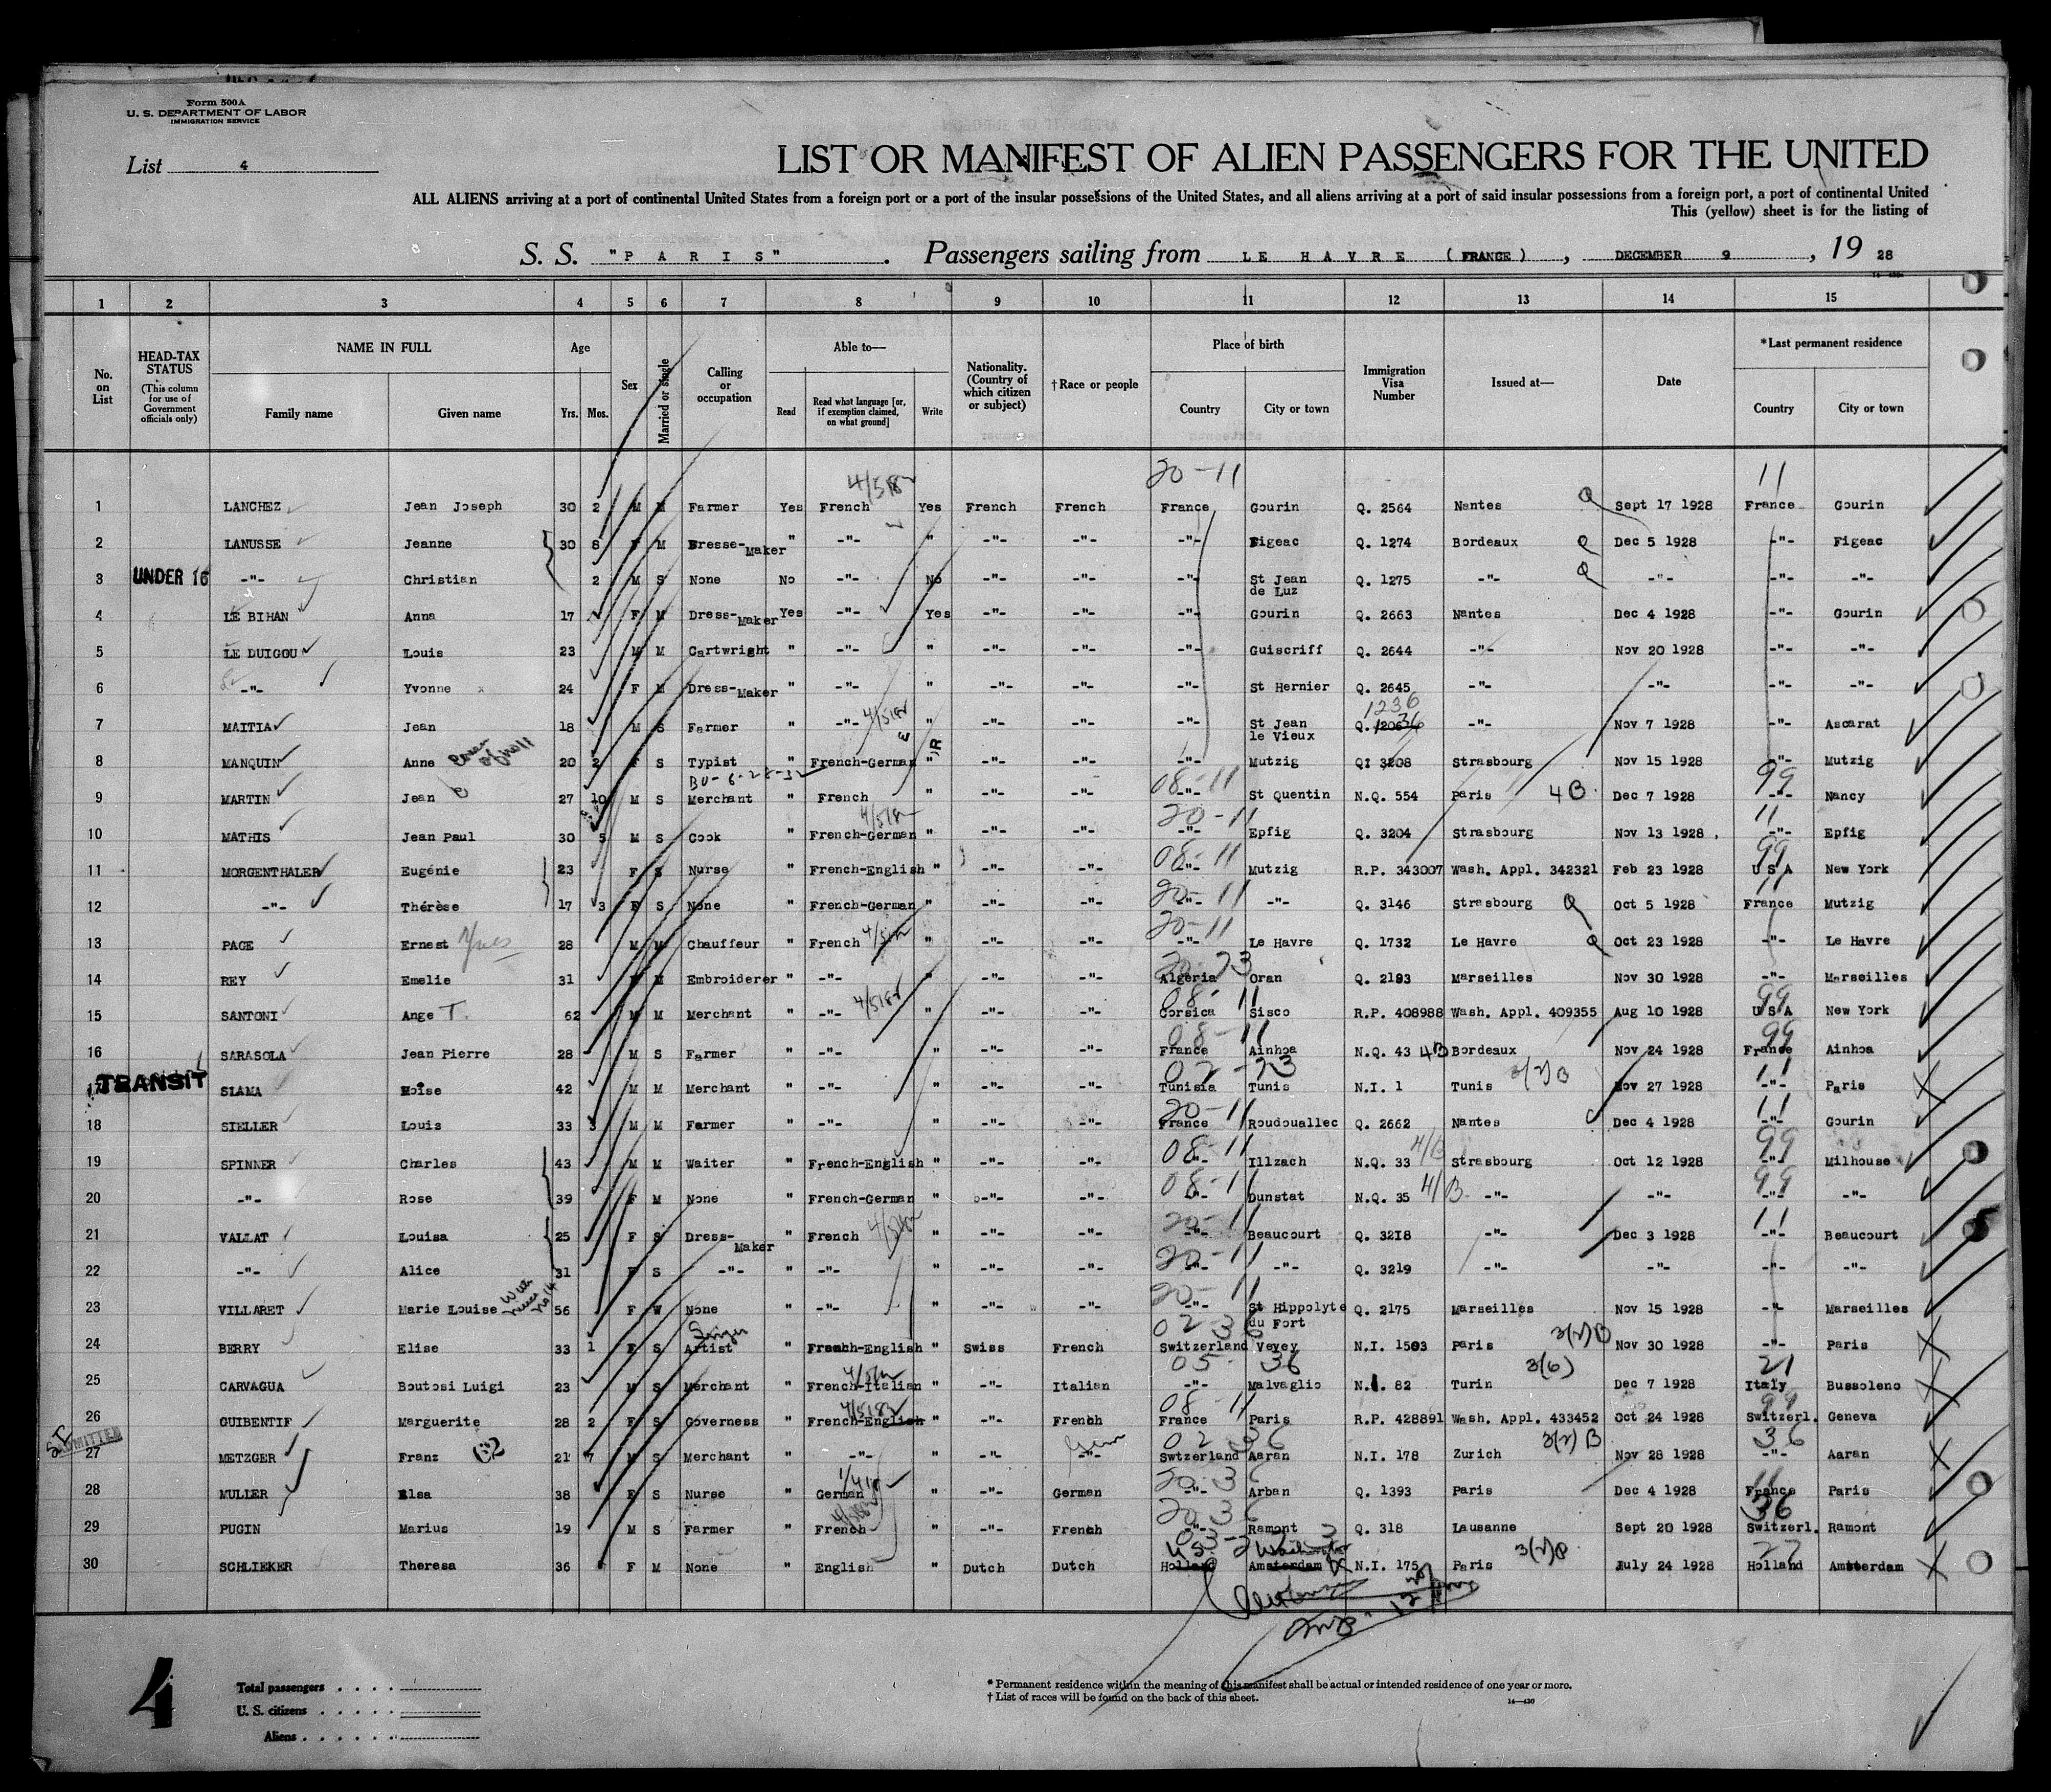 Form 500A
U. S. DEPARTMENT OF LABOR
IMMIGRATION SERVICE
List 4
LIST OR MANIFEST OF ALIEN PASSENGERS FOR THE UNITED
ALL ALIENS arriving at a port of continental United States from a foreign port or a port of the insular possessions of the United States, and all aliens arriving at a port of said insular possessions from a foreign port, a port of continental United
This (yellow) sheet is for the listing of
S. S. "PARIS". Passengers sailing from LE HAVRE (FRANCE), DECEMBER 9, 1928
1 2 3 4 5 6 7 8 9 10 11 12 13 14 15
No. on List
HEAD-TAX STATUS (This column for use of Government officials only)
NAME IN FULL
Family name Given name
Age
Yrs. Mos.
Sex
Married or single
Calling or occupation
Able to—
Read
Read what language [or, if exemption claimed, on what ground]
Write
Nationality. (Country of which citizen or subject)
† Race or people
Place of birth
Country City or town
Immigration Visa Number
Issued at—
Date
*Last permanent residence
Country City or town
20-11 11
1 LANCHEZ Jean Joseph 30 2 M M Farmer Yes French Yes French French France Gourin Q. 2564 Nantes Sept 17 1928 France Gourin
2 LANUSSE Jeanne 30 8 F M Dresse-Maker " -"- " -"- -"- -"- Figeac Q. 1274 Bordeaux Dec 5 1928 -"- Figeac
3 UNDER 16 -"- Christian 2 M S None No -"- No -"- -"- -"- St Jean de Luz Q. 1275 -"- -"- -"- -"-
4 LE BIHAN Anna 17 F M Dress-Maker Yes -"- Yes -"- -"- -"- Gourin Q. 2663 Nantes Dec 4 1928 -"- Gourin
5 LE DUIGOU Louis 23 M M Cartwright " -"- " -"- -"- -"- Guiscriff Q. 2644 -"- Nov 20 1928 -"- -"-
6 -"- Yvonne 24 F M Dress-Maker " -"- " -"- -"- -"- St Hernier Q. 2645 -"- -"- -"- -"-
1236
7 MAITIA Jean 18 M S Farmer " -"- " -"- -"- -"- St Jean le Vieux Q. -"- Nov 7 1928 -"- Ascarat
8 MANQUIN Anne 20 2 F S Typist " French-German " -"- -"- -"- Mutzig QI 3208 Strasbourg Nov 15 1928 -"- Mutzig
08-11 99
9 MARTIN Jean 27 10 M S Merchant " French " -"- -"- -"- St Quentin N.Q. 554 Paris 4B Dec 7 1928 -"- Nancy
20-11 11
10 MATHIS Jean Paul 30 5 M S Cook " French-German " -"- -"- -"- Epfig Q. 3204 Strasbourg Nov 13 1928 -"- Epfig
08-11 99
11 MORGENTHALER Eugénie 23 F S Nurse " French-English " -"- -"- -"- Mutzig R.P. 343007 Wash. Appl. 342321 Feb 23 1928 U S A New York
20-11 11
12 -"- Thérèse 17 3 F S None " French-German " -"- -"- -"- -"- Q. 3146 Strasbourg Oct 5 1928 France Mutzig
20-11
13 PAGE Ernest Yves 28 M M Chauffeur " French " -"- -"- -"- Le Havre Q. 1732 Le Havre Oct 23 1928 -"- Le Havre
14 REY Emelie 31 M Embroiderer " -"- " -"- -"- Algeria Oran Q. 2193 Marseilles Nov 30 1928 -"- Marseilles
08-11 99
15 SANTONI Ange T. 62 M M Merchant " -"- " -"- -"- Corsica Sisco R.P. 408988 Wash. Appl. 409355 Aug 10 1928 U S A New York
08-11 99
16 SARASOLA Jean Pierre 28 M S Farmer " -"- " -"- -"- France Ainhoa N.Q. 43 4B Bordeaux Nov 24 1928 France Ainhoa
02-23 11
17 TRANSIT SLAMA Moise 42 M M Merchant " -"- " -"- -"- Tunisia Tunis N.I. 1 Tunis Nov 27 1928 -"- Paris
20-11 11
18 SIELLER Louis 33 3 M M Farmer " -"- " -"- -"- France Roudouallec Q. 2662 Nantes Dec 4 1928 -"- Gourin
08-11 99
19 SPINNER Charles 43 M M Waiter " French-English " -"- -"- -"- Illzach N.Q. 33 4/B Strasbourg Oct 12 1928 -"- Milhouse
08-11 99
20 -"- Rose 39 F M None " French-German " -"- -"- -"- Dunstat N.Q. 35 4/B -"- -"- -"- -"-
20-11 11
21 VALLAT Louisa 25 F S Dress-Maker " French " -"- -"- -"- Beaucourt Q. 3218 -"- Dec 3 1928 -"- Beaucourt
20-11
22 -"- Alice 31 F S -"- " -"- " -"- -"- -"- -"- Q. 3219 -"- -"- -"- -"-
20-11
23 VILLARET Marie Louise 56 F W None " -"- " -"- -"- -"- St Hippolyte du Fort Q. 2175 Marseilles Nov 15 1928 -"- Marseilles
02 36
24 BERRY Elise 33 1 F S Singer Artist " French-English " Swiss French Switzerland Vevey N.I. 1503 Paris Nov 30 1928 -"- Paris
05-36 3(6) 21
25 CARVAGUA Boutosi Luigi 23 M S Merchant " French-Italian " -"- Italian -"- Malvaglio N.I. 82 Turin Dec 7 1928 Italy Bussoleno
08-11 99
26 GUIBENTIF Marguerite 28 2 F S Governess " French-English " -"- French France Paris R.P. 428891 Wash. Appl. 433452 Oct 24 1928 Switzerl. Geneva
ADMITTED
02 36 36
27 METZGER Franz 21 7 M S Merchant " -"- " -"- -"- Swtzerland Aaran N.I. 178 Zurich Nov 28 1928 -"- Aaran
20 36 11
28 MULLER Elsa 38 F S Nurse " German " -"- German -"- Arban Q. 1393 Paris Dec 4 1928 France Paris
20 36 36
29 PUGIN Marius 19 M S Farmer " French " -"- French -"- Ramont Q. 318 Lausanne Sept 20 1928 Switzerl. Ramont
U.S. Washington 27
30 SCHLIEKER Theresa 36 F M None " English " Dutch Dutch Holland Amsterdam N.I. 175 Paris July 24 1928 Holland Amsterdam
4
Total passengers
U. S. citizens
Aliens
* Permanent residence within the meaning of this manifest shall be actual or intended residence of one year or more.
† List of races will be found on the back of this sheet.
14—430